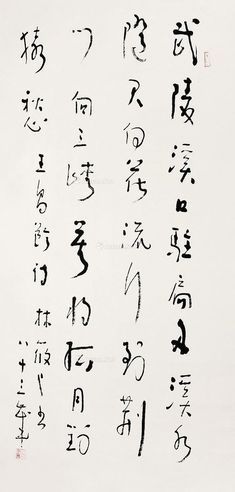 武陵溪口駐扁舟溪水
隨君向北流行到荆
门向三峡莫將孤月對
猿愁 王昌齡詩 林筱之書
八十三年